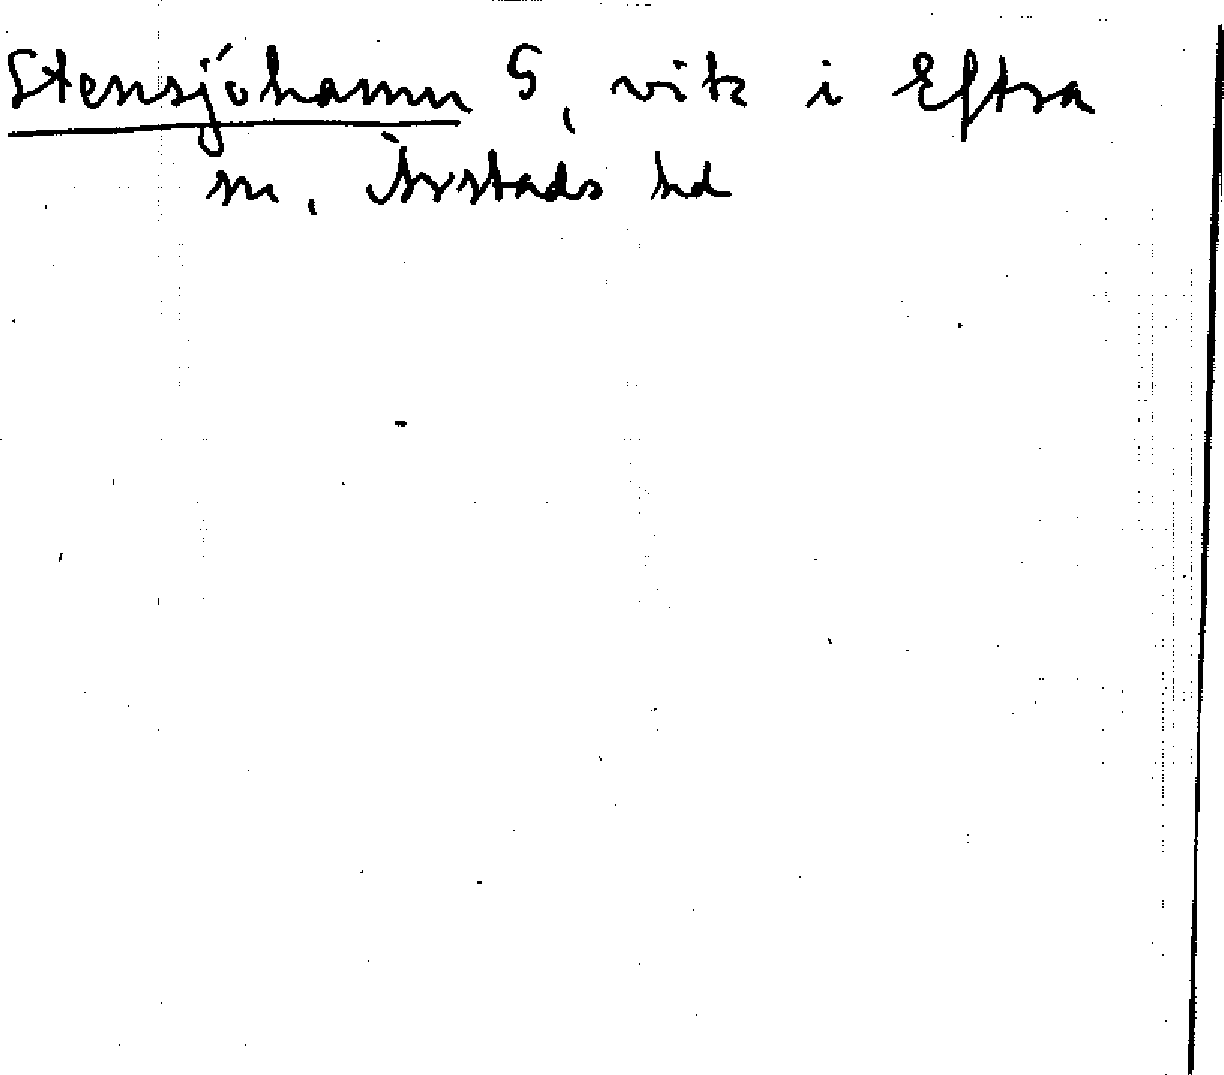 Stensjöhamn S, vik i Eftra
sn, Årstads hd